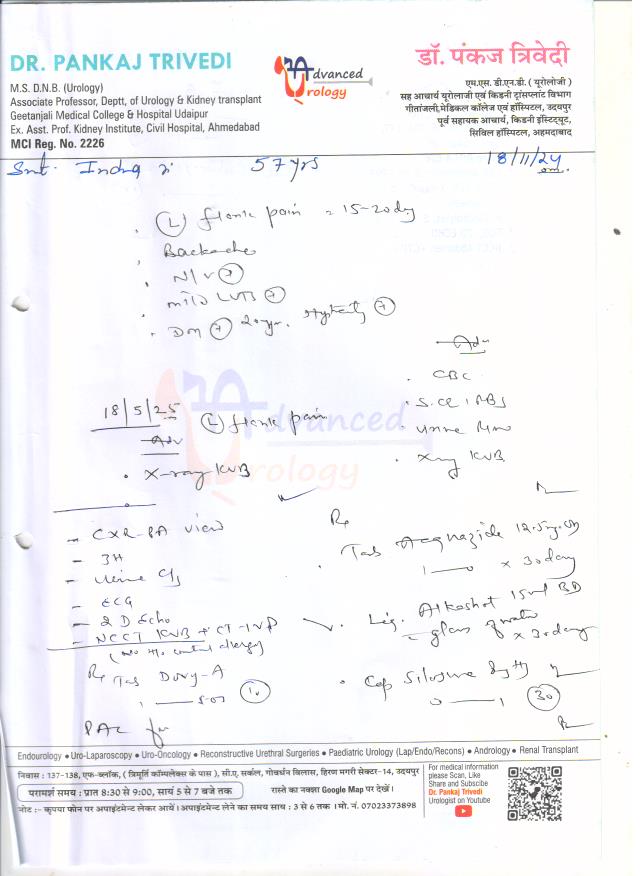 DR. PANKAJ TRIVEDI
M.S. D.N.B. (Urology)
Associate Professor, Deptt, of Urology & Kidney transplant
Geetanjali Medical College & Hospital Udaipur
Ex. Asst. Prof. Kidney Institute, Civil Hospital, Ahmedabad
MCI Reg. No. 2226
Advanced
Urology
डॉ. पंकज त्रिवेदी
एम.एस. डी.एन.बी. ( यूरोलोजी )
सह आचार्य यूरोलाजी एवं किडनी ट्रांसप्लांट विभाग
गीतांजली,मेडिकल कॉलेज एवं हॉस्पिटल, उदयपुर
पूर्व सहायक आचार्य, किडनी इंस्टिट्यूट,
सिविल हॉस्पिटल, अहमदाबाद
Smt. Indra 57 yrs 18/11/24
(L) flank pain = 15-20 day
Backache
N/V (+)
mild LUTS (+)
DM (+) 20 yr.
Adv
CBC
S. Cr / RBS
Urine
X-ray KUB
18/5/25 (L) flank pain
Adv
X-ray KUB
CXR-PA view
3H
Urine C/S
ECG
2D Echo
NCCT KUB + CT-IVP
Rx
Tab 12.5mg
1 — 0 x 30 day
Liq. Alkashot 15ml BD
glass of water
x 30 day
Rx Tab Doxy-A
(10)
Cap
0 — 1 (30)
PAC for
Endourology ● Uro-Laparoscopy ● Uro-Oncology ● Reconstructive Urethral Surgeries ● Paediatric Urology (Lap/Endo/Recons) ● Andrology ● Renal Transplant
निवास : 137-138, एफ-ब्लॉक, ( त्रिमूर्ति कॉम्पलेक्स के पास ), सी.ए. सर्कल, गोवर्धन विलास, हिरण मगरी सेक्टर-14, उदयपुर
परामर्श समय : प्रात 8:30 से 9:00, सायं 5 से 7 बजे तक
रास्ते का नक्शा Google Map पर देखें।
नोट :- कृपया फोन पर अपाइंटमेन्ट लेकर आयें। अपाइंटमेन्ट लेने का समय साय : 3 से 6 तक । मो. नं. 07023373898
For medical information
please Scan, Like
Share and Subscibe
Dr. Pankaj Trivedi
Urologist on Youtube